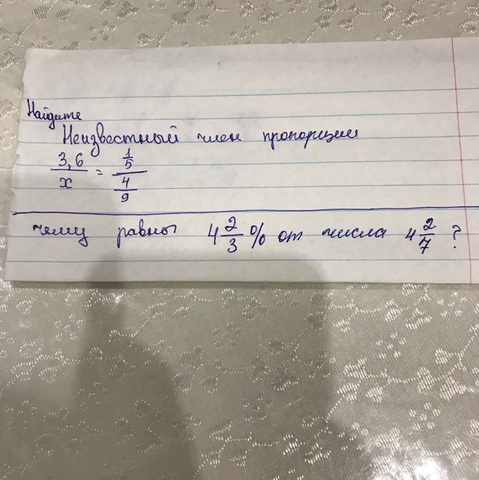 Найдите
Неизвестный член пропорции
3,6/x = (1/5)/(4/9)
чему равны 4 2/3 % от числа 4 2/7 ?